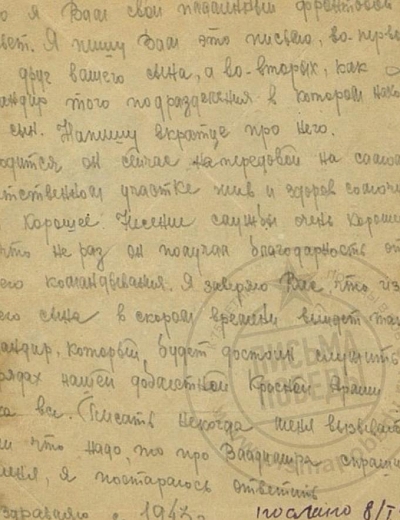 о я Вам свой пламенный фронтовой
вет. Я пишу Вам это письмо, во-перво
друг вашего сына, а во-вторых, как
андир того подразделения в котором нахо
сын. Напишу вкратце про него.
одится он сейчас на передовой на самом
етственном участке жив и здоров
хорошее Несение службы очень хорош
что не раз он получал благодарность от
его командования. Я заверяю Вас, что из
его сына в скором времени выйдет
андир, который будет достоин служить
рядах нашей доблестной Красной Армии
ка все. Писать некогда меня вызывают
ли что надо, то про Владимира спраши
меня, я постараюсь ответить
здравляю с 1943 г. послано 8/I
ПИСЬМА
ПОБЕДЫ